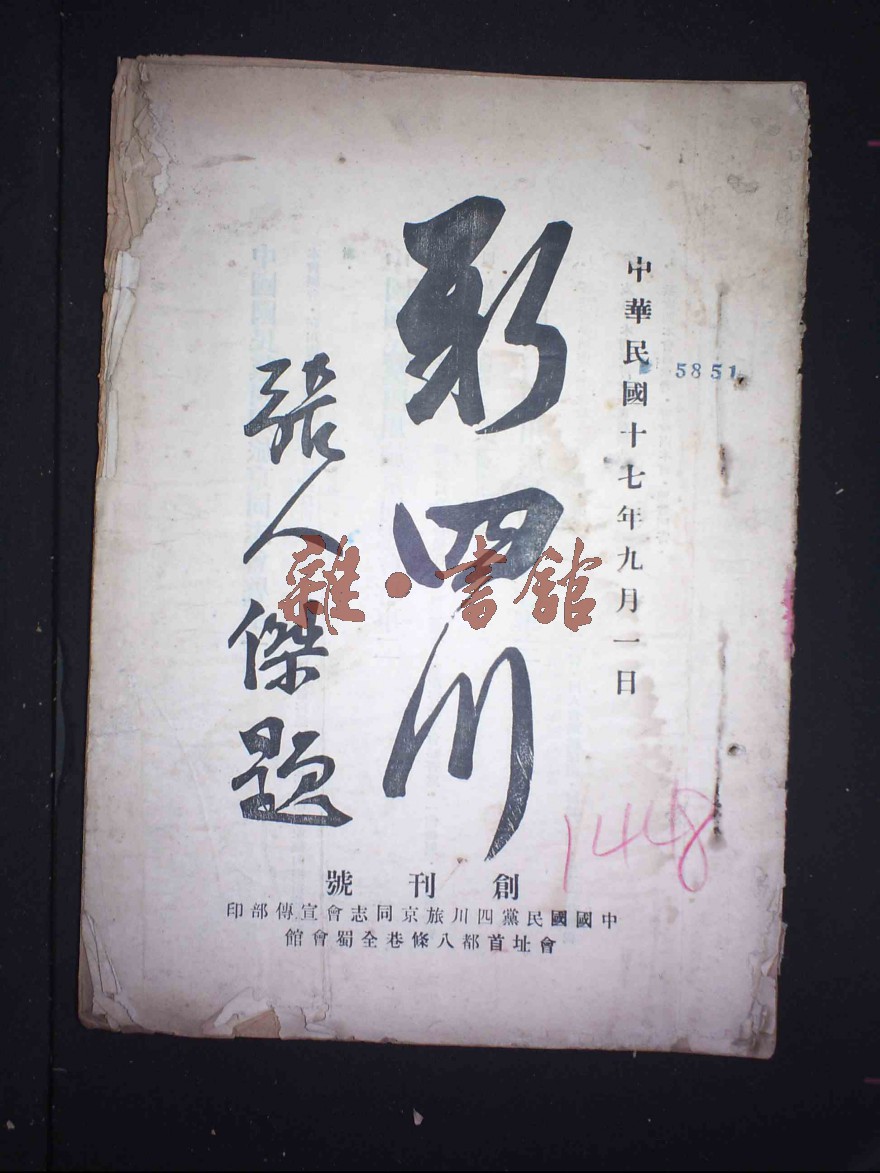 中華民國十七年九月一日
5851
新四川
張人傑題
雜·書館
1448
創刊號
中國國民黨四川旅京同志會宣傳部印
會址首都八條巷全蜀會館